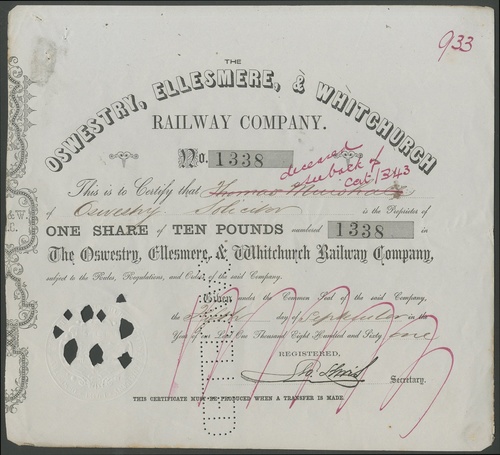 933
THE
OSWESTRY, ELLESMERE, & WHITCHURCH
RAILWAY COMPANY.
No. 1338
deceased
see back of
cert 1343
This is to Certify that Thomas Minshall
of Oswestry Solicitor is the Proprietor of
ONE SHARE OF TEN POUNDS numbered 1338 in
The Oswestry, Ellesmere, & Whitchurch Railway Company,
subject to the Rules, Regulations, and Orders of the said Company.
Given under the Common Seal of the said Company,
the day of September in the
Year of our Lord One Thousand Eight Hundred and Sixty one
REGISTERED,
Secretary.
THIS CERTIFICATE MUST BE PRODUCED WHEN A TRANSFER IS MADE.